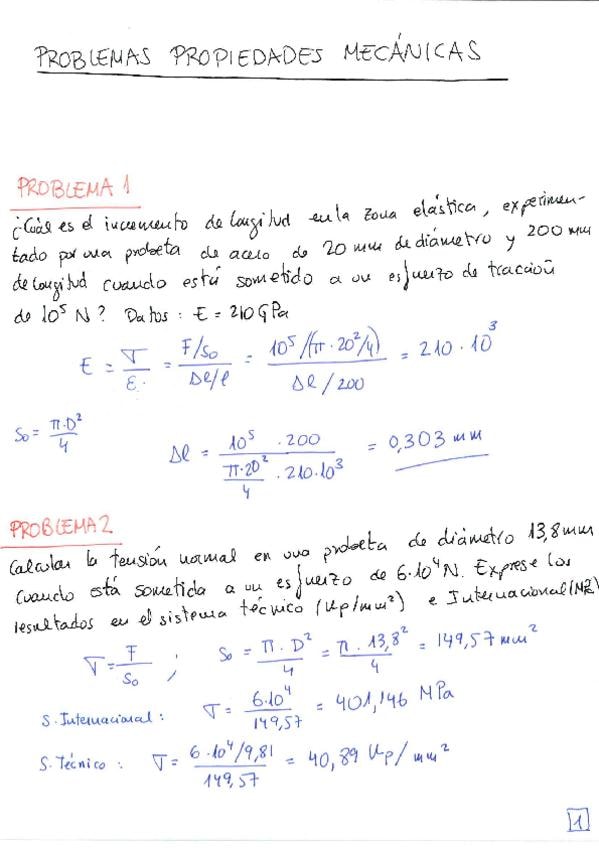 PROBLEMAS PROPIEDADES MECÁNICAS
PROBLEMA 1
¿Cuál es el incremento de longitud en la zona elástica, experimen-
tado por una probeta de acero de 20 mm de diámetro y 200 mm
de longitud cuando está sometido a un esfuerzo de tracción
de 10⁵ N? Datos: E = 210 GPa
E = σ/ε = (F/S₀)/(Δl/l) = (10⁵/(π·20²/4))/(Δl/200) = 210·10³
S₀ = π·D²/4
Δl = (10⁵·200)/((π·20²/4)·210·10³) = 0,303 mm
PROBLEMA 2
Calcular la tensión normal en una probeta de diámetro 13,8mm
cuando está sometida a un esfuerzo de 6·10⁴N. Exprese los
resultados en el sistema técnico (Kp/mm²) e Internacional (MPa)
σ = F/S₀ ; S₀ = π·D²/4 = π·13,8²/4 = 149,57 mm²
S. Internacional: σ = 6·10⁴/149,57 = 401,146 MPa
S. Técnico: σ = (6·10⁴/9,81)/149,57 = 40,89 Kp/mm²
1